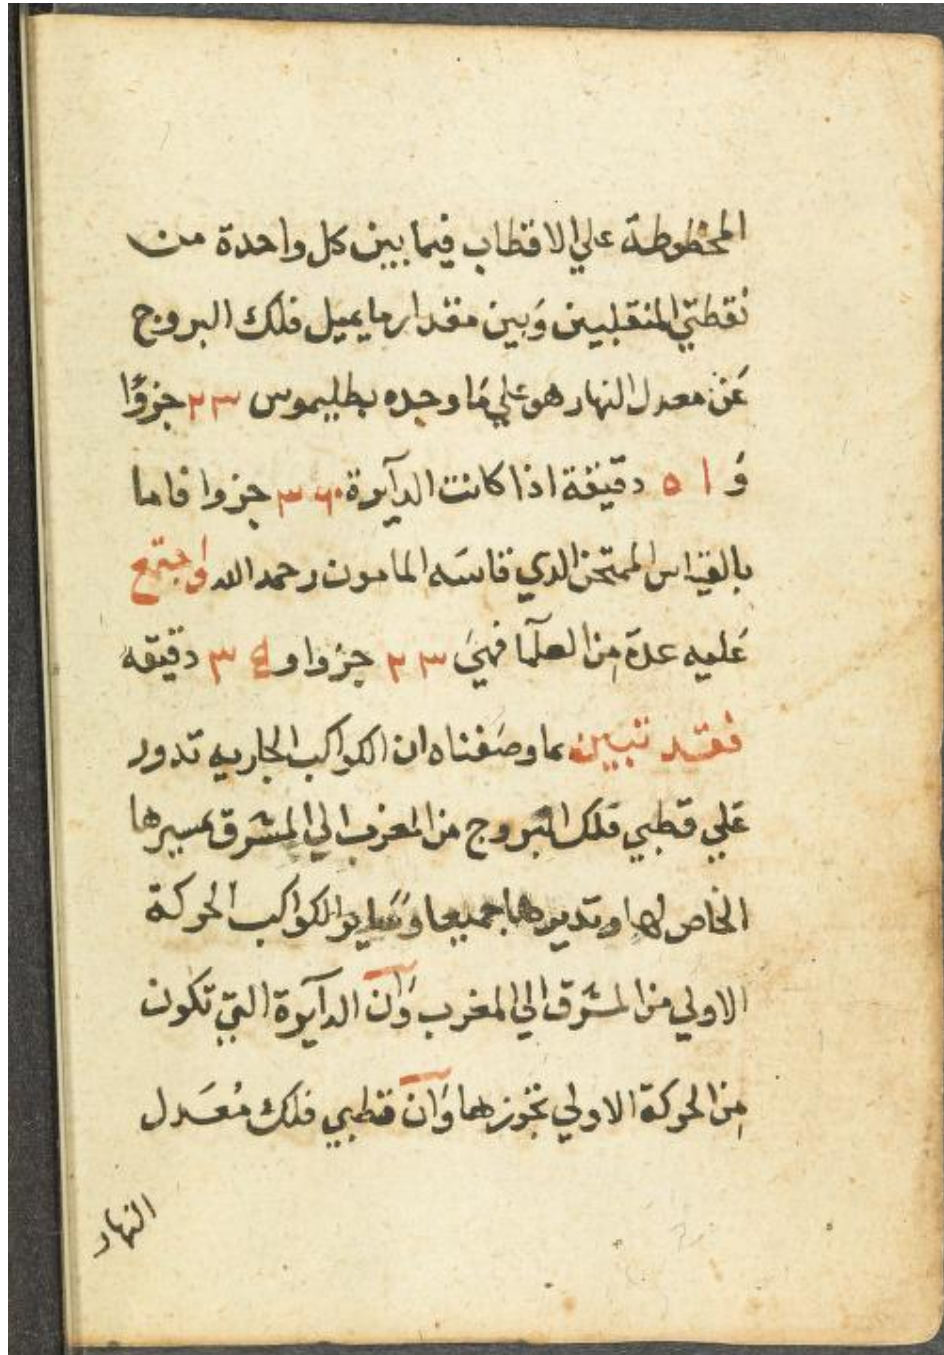 المخطوطة علي الاقطاب فيما بين كل واحدة من
نقطتي المنقلبين وَبين مقدار ما يميل فلك البروج
عَن معدل النهار هو علي مَا وجده بطليموس ٢٣ جزؤًا
وَ ٥١ دقيقة اذا كانت الدآيرة ٣٦٠ جزوا فاما
بالقياس الممتحن الذي قاسَه المامون رحمه الله واجتمع
عَليه عدة من العلمآ فهيَ ٢٣ جزوا و ٣٤ دقيقه
فقد تبين بما وصَفناه ان الكواكب الجاريه تدور
عَلي قطبي فلك البروج من المغرب الي المشرق بمسيرها
الخاص لها وتديرها جميعا وَسَاير الكواكب الحركة
الاولي من المشرق الي المغرب وَان الدآيرة التي تكون
من الحركة الاولي تجوزها وَان قطبي فلك مُعَدل
النهار